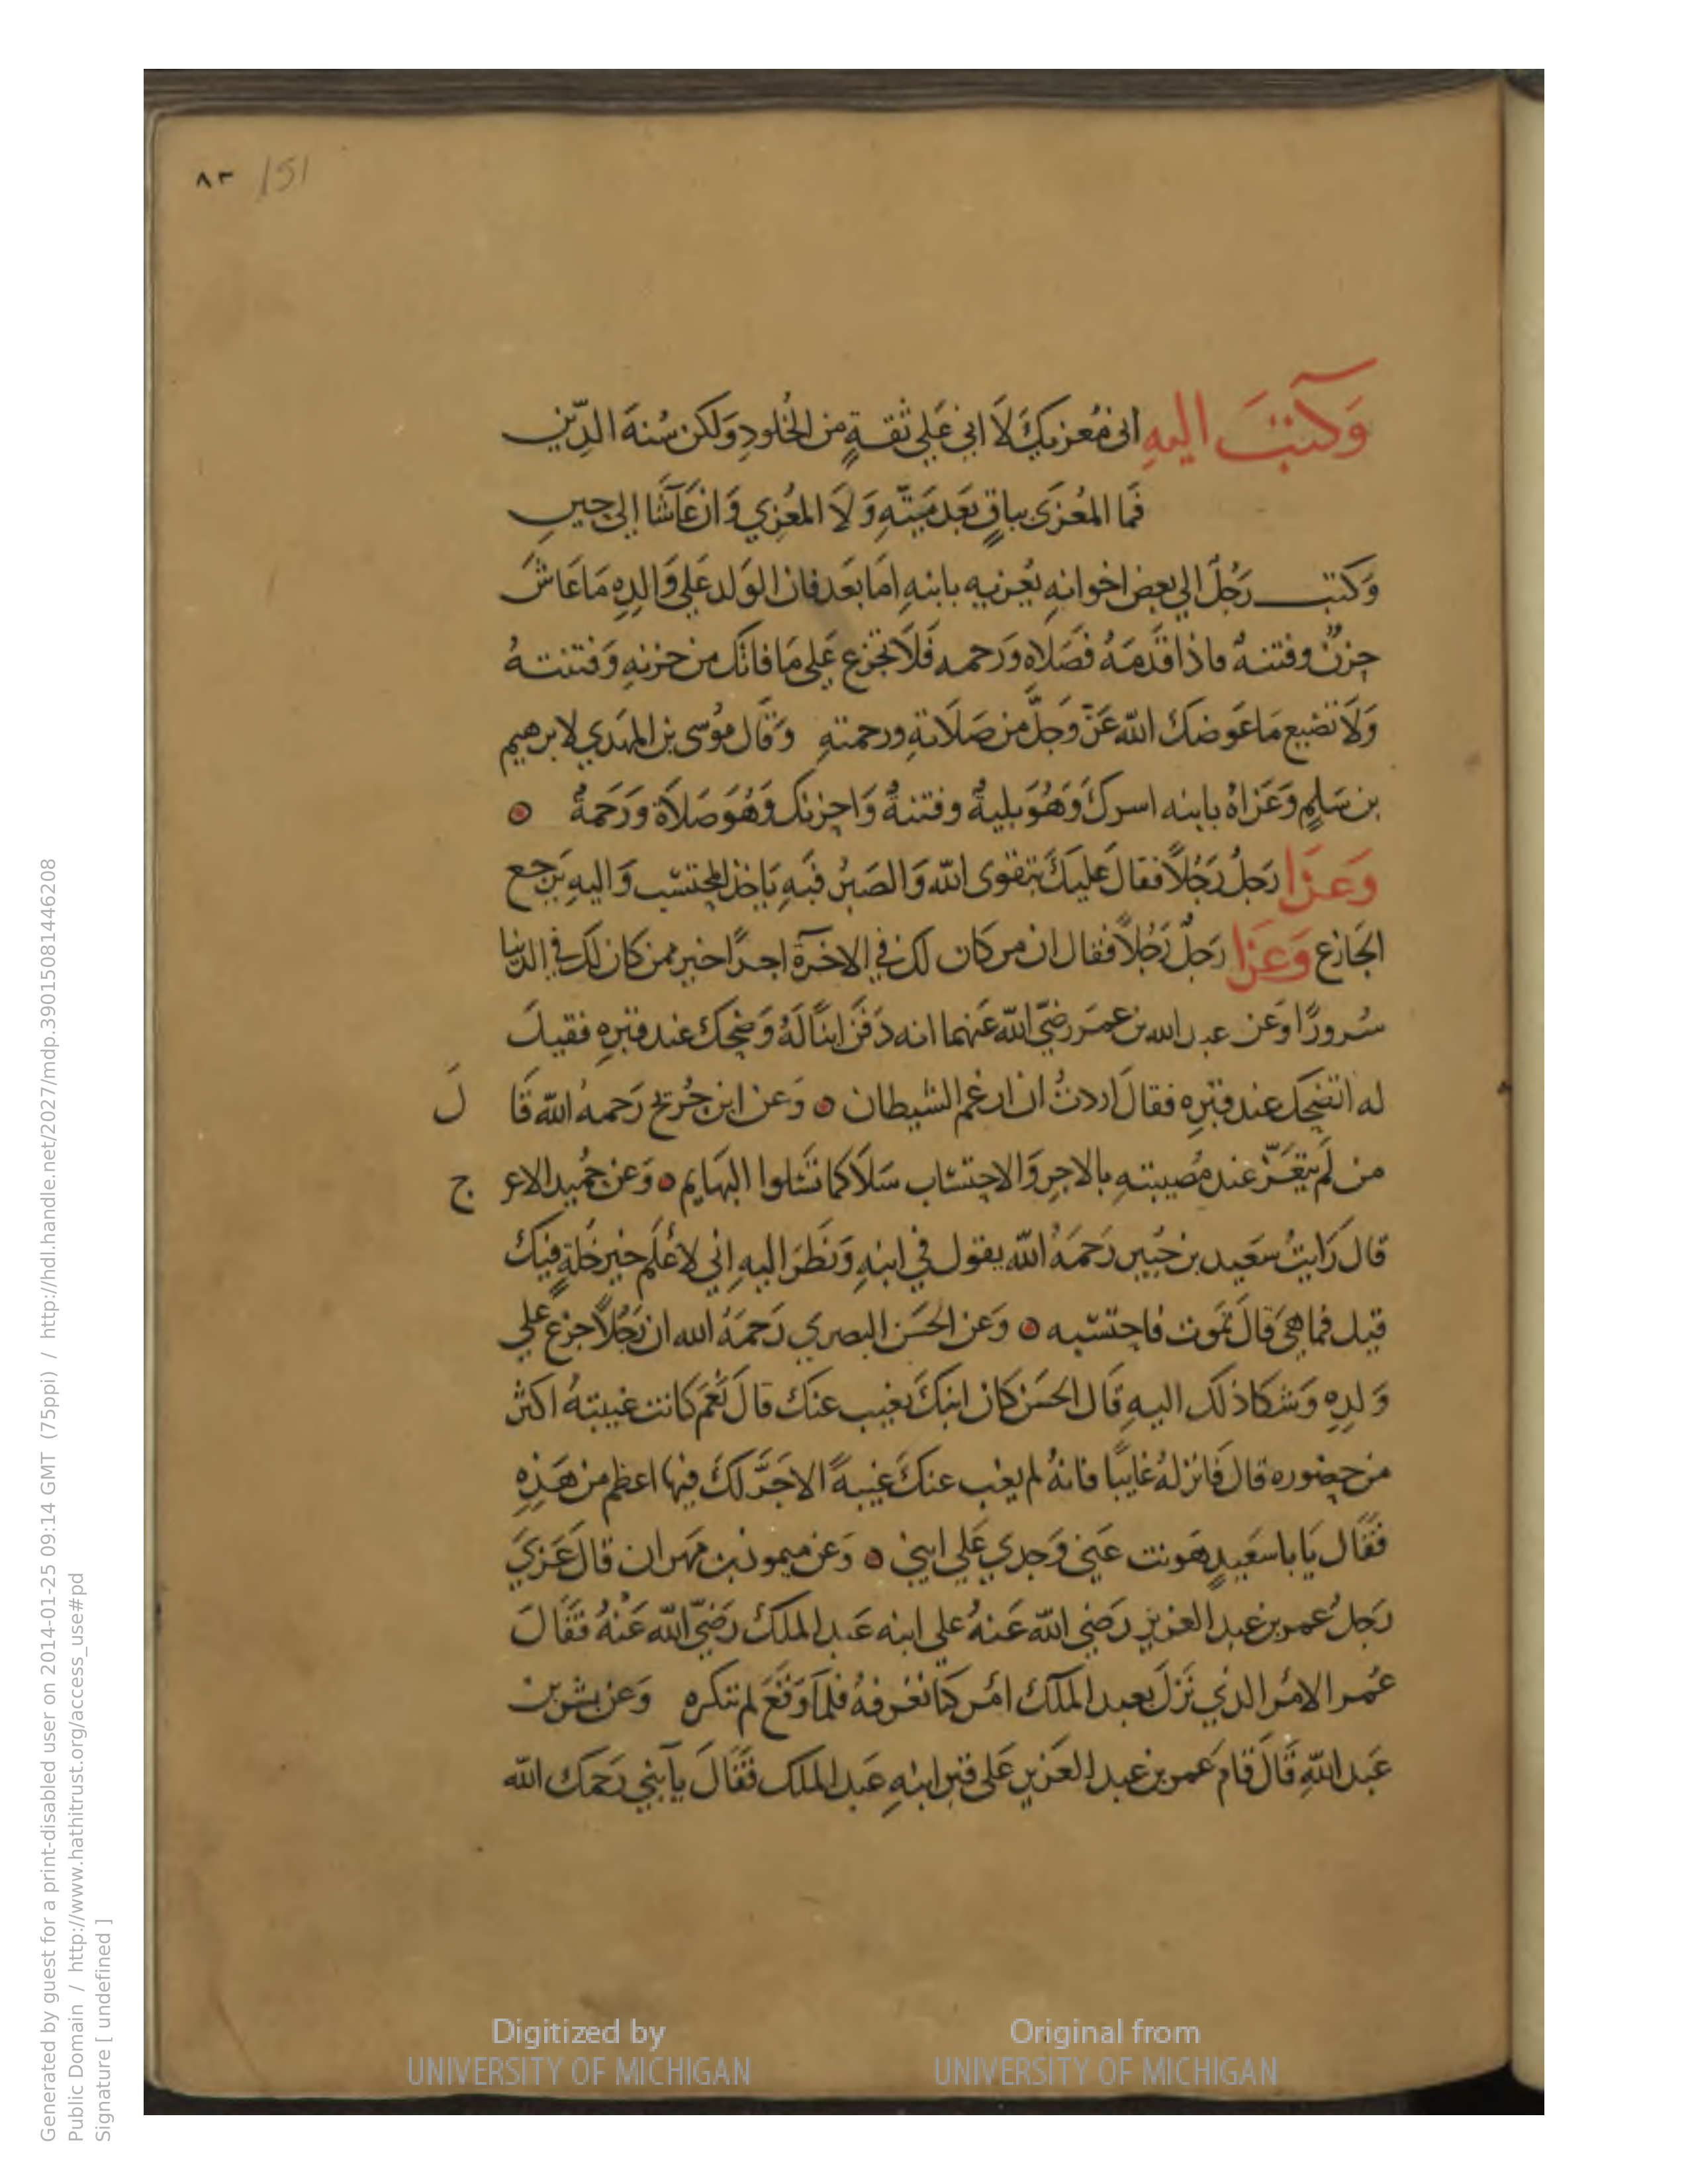 ٨٣ 151
وَكتبَ اليهِ انى مُعزيكَ لَا انى عَلي ثقةٍ من الخُلودِ وَلكن سُنهَ الدِّين
فَما المُعزَى بباقٍ بَعَد مَيتّهِ وَلَا المُعزِي وَان عَاشَا الى حِينِ
وَكتب رَجُلٌ الي بعض اخوانهِ يُعزيه بابنهِ امَا بَعَد فان الوَلد عَلي وَالدِهِ مَا عَاشَ
حزنٌ وفتنهٌ فاذا قَدمَهُ فصَلاه ورَحمه فَلَا تجزع عَلى مَا فاتك من حزنهِ وَفتنتهُ
وَلَا تضيع مَا عَوضكَ اللّه عَزَّ وَجلَّ من صَلَاتهِ ورحمتهِ وَقال مُوسى بن المهَدي لابرهيم
بن سَلمٍ وَعَزاهُ بابنه اسركَ وَهُوَ بليةٌ وفتنةٌ وَاحزنك وَهُوَ صَلاَة وَرَحمَةٌ
وَعزا رَجلٌ رَجُلاً فقالَ عَليكَ بتقوى اللّه وَالصَبر فبَهِ يَاخذ المحتسب وَاليهِ يَرجع
الجَازع وَعَزا رَجلٌ رَجُلاً فقال ان من كان لك في الاخرَة اجرًا خير ممن كان لك في الدنيا
سُرورًا وعَن عبد الله بن عمَر رضيَ اللّه عَنهما انه دَفن ابنًا لَهُ وَضحكَ عند قبرِهِ فقيلَ
له اتضحك عند قبرِه فقالَ اردتُ ان ارغم الشيطان وَعن ابن جُريج رَحمهُ اللّه قَا لَ
من لَم يتعَزّ عند مُصيبتهِ بالاجرِ وَالاحتسَاب سَلَا كما تَسَلوا البهَايم وَعن حُميد الاعر ج
قال رَايتُ سَعَيد بن جُبير رَحمَهُ اللّه يقول في ابنهِ وَنَظرَ اليهِ اِني لاعْلَم خير خَلةٍ فيكَ
قيل فما هيَ قالَ تمَوت فاحتسبه وَعن الحَسَن البصري رَحمَهُ الله ان رَجُلاً جزع علي
وَلدِهِ وَشكا ذلك اليهِ قَال الحسَن كان ابنكَ يغيب عنكَ قالَ نعَم كانت غيبتهُ اكثر
من حضوره قال فَانزلهُ غايبًا فانهُ لم يغب عنكَ غيبهً الاجرُ لكَ فيها اعظم من هَذِهِ
فقَال يَابا سعَيدٍ هَونت عَني وَجدي عَلي ابني وَعن ميمون بن مَهران قالَ عَزيَ
رَجلٌ عمر بن عبد العَزيز رَضي اللّه عَنهُ على ابنه عَبد الملك رَضيَ اللّه عَنْهُ فقَالَ
عُمر الامُر الذي نَزلَ بعبد الملك امُر كنا نعَرفهُ فلمَا وَقَعَ لم ننكره وَعن بشر بن
عَبد اللّهِ قَالَ قامَ عمر بن عبد العَزيز عَلى قبر ابنهِ عَبد الملك فقَالَ يَابني رَحمَك اللّه
Digitized by UNIVERSITY OF MICHIGAN
Original from UNIVERSITY OF MICHIGAN
Generated by guest for a print-disabled user on 2014-01-25 09:14 GMT (75ppi) / http://hdl.handle.net/2027/mdp.39015081446208
Public Domain / http://www.hathitrust.org/access_use#pd
Signature [ undefined ]